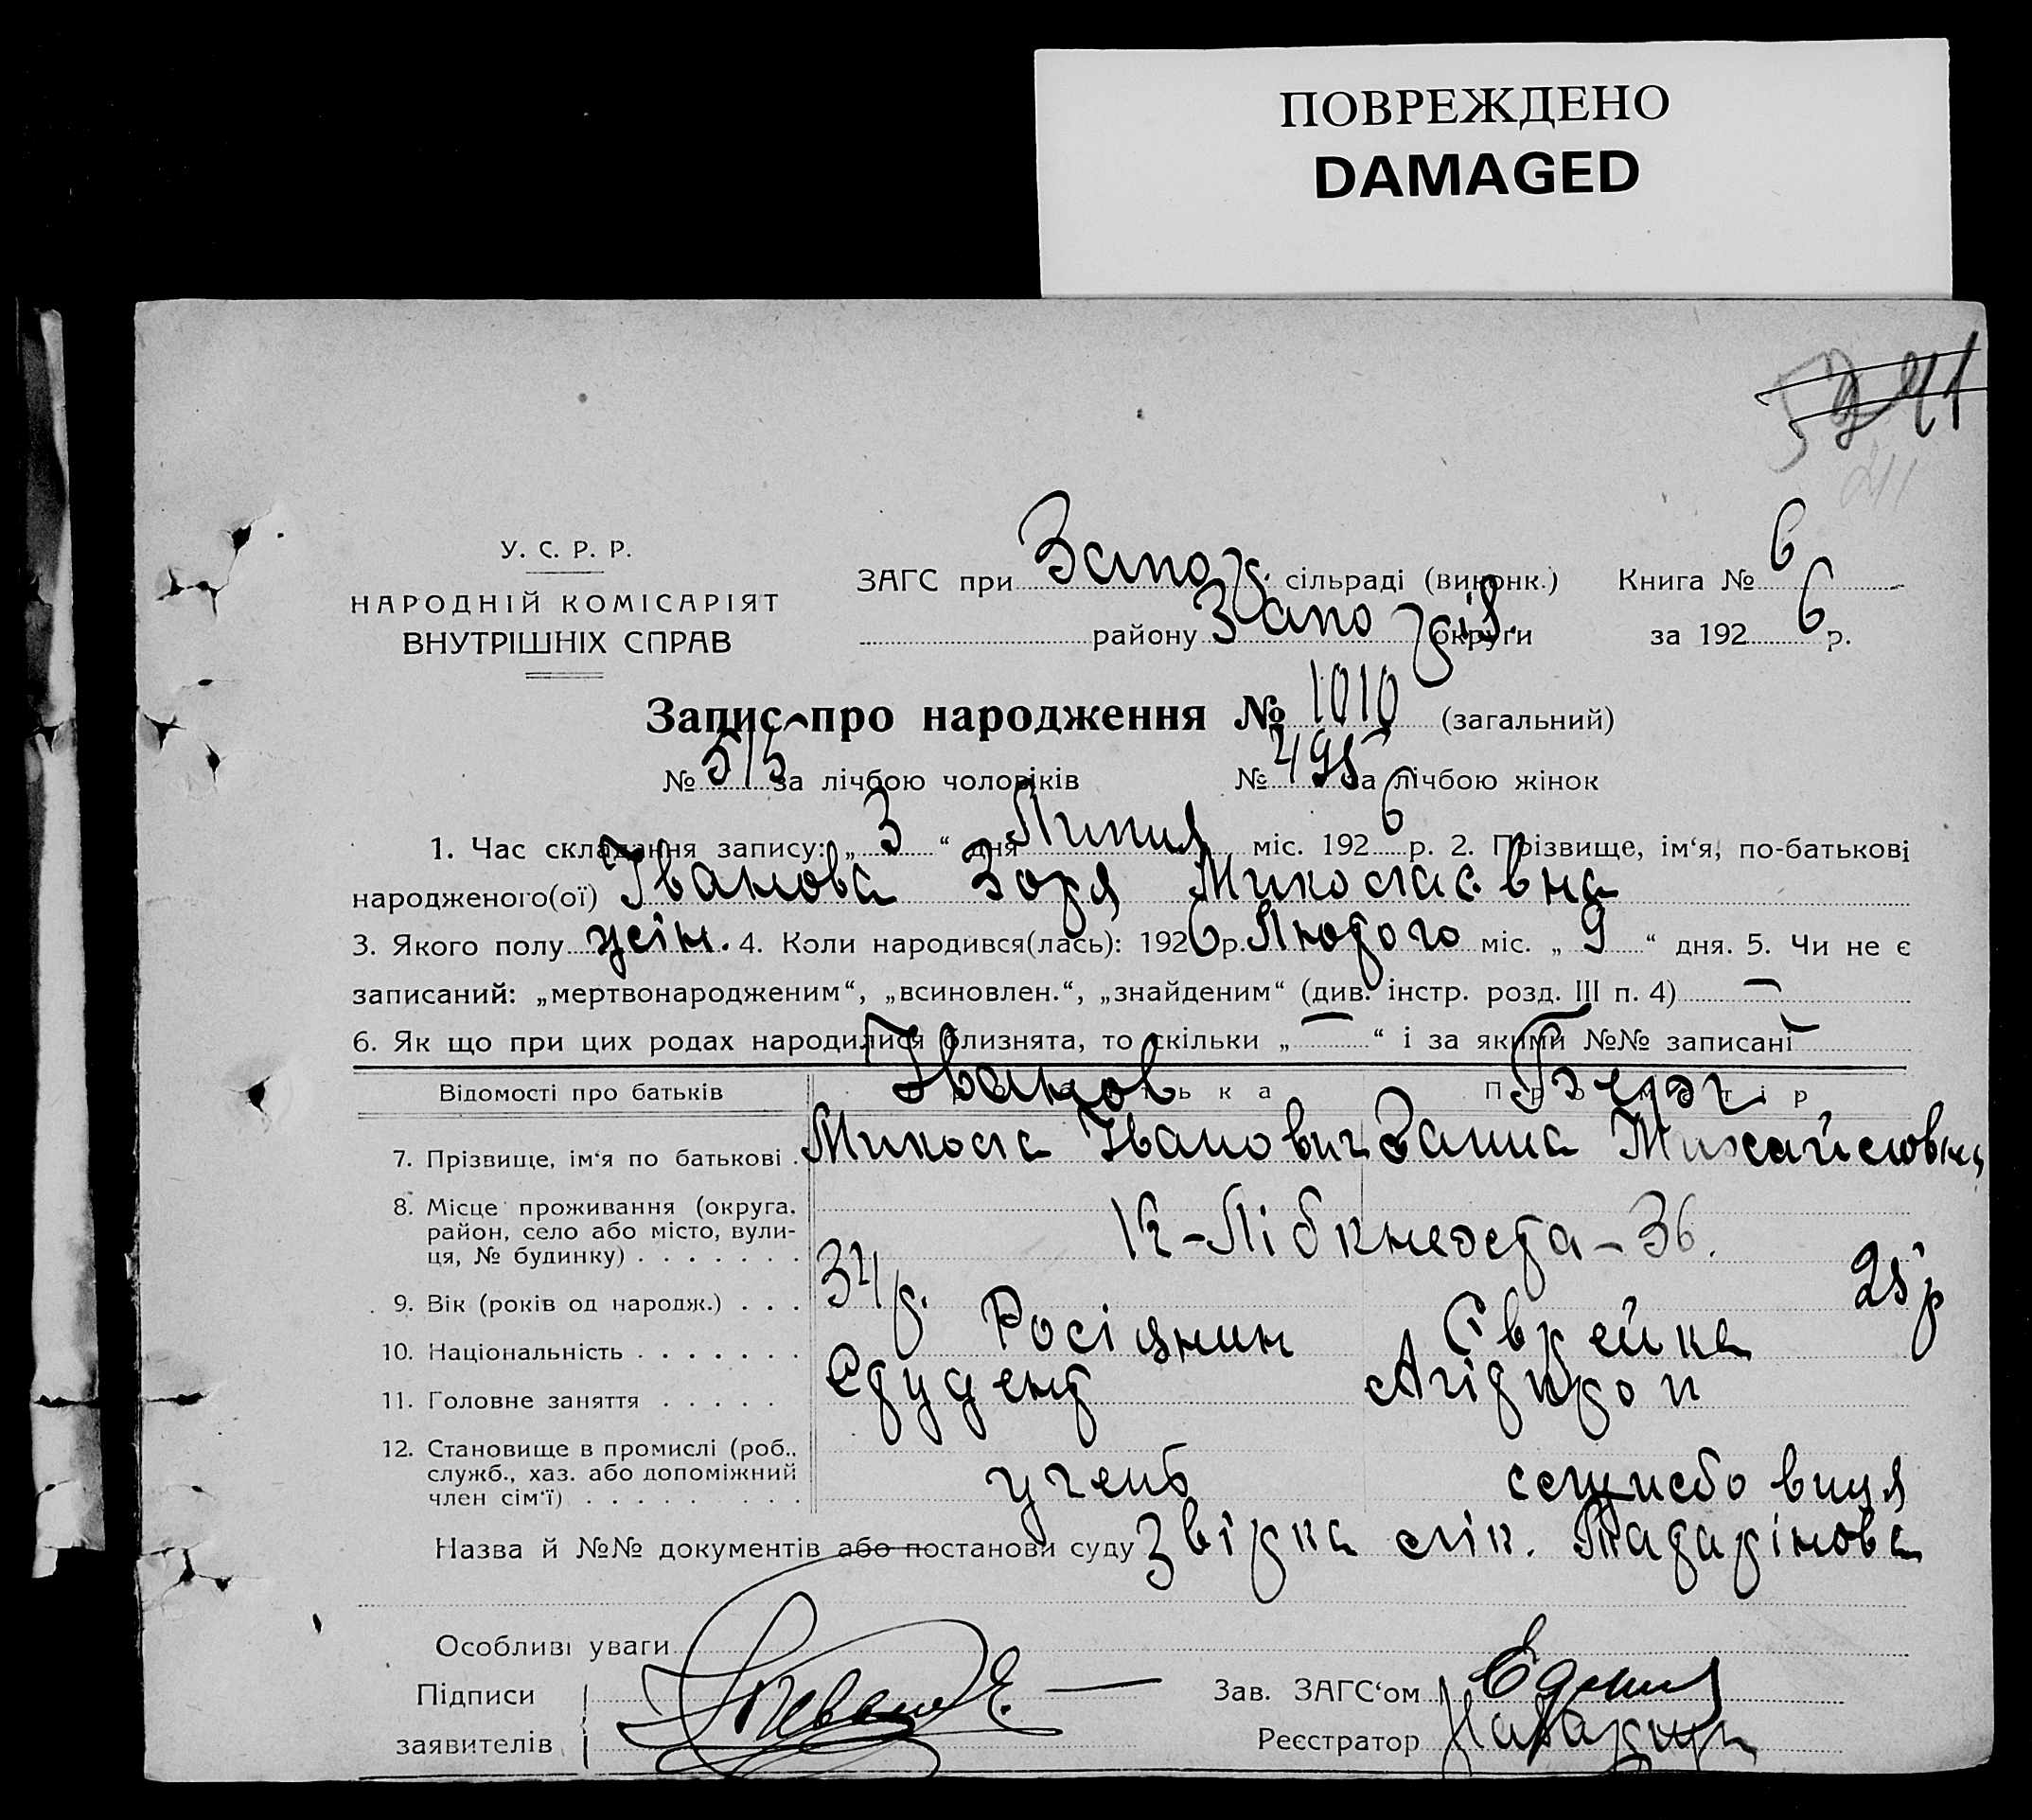 ПОВРЕЖДЕНО
DAMAGED
241
У. С. Р. Р.
НАРОДНІЙ КОМІСАРІЯТ
ВНУТРІШНІХ СПРАВ
ЗАГС при Запор. сільраді (виконк.) Книга № 6
району Запорізь. округи за 192 6 р.
Запис про народження № 1010 (загальний)
№ 515 за лічбою чоловіків № 495 за лічбою жінок
1. Час складання запису: „ 3 “ дня Липня міс. 192 6 р. 2. Прізвище, ім‘я, по-батькові
народженого(ої) Іванова Зоря Миколаєвна
3. Якого полу жін. 4. Коли народився(лась): 192 6 р. Лютого міс. „ 9 “ дня. 5. Чи не є
записаний: „мертвонародженим“, „всиновлен.“, „знайденим“ (див. інстр. розд. III п. 4) —
6. Як що при цих родах народилися близнята, то скільки „ — “ і за якими №№ записані —
Відомості про батьків Про батька Про матір
7. Прізвище, ім‘я по батькові . Іванов Микола Іванович Ганна Михайловна
8. Місце проживання (округа, район, село або місто, вулиця, № будинку) . . . . . . . К-Лібкнехта – 36.
9. Вік (років од народж.) . . . 34 р. 25 р
10. Національність . . . . . . . Росіянин Єврейка
11. Головне заняття . . . . . Студент
12. Становище в промислі (роб., служб., хаз. або допоміжний член сім‘ї) . . . . . . . . . учень службовиця
Назва й №№ документів або постанови суду Звірка лік. Татарінова
Особливі уваги
Підписи
заявителів
Зав. ЗАГС‘ом
Реєстратор